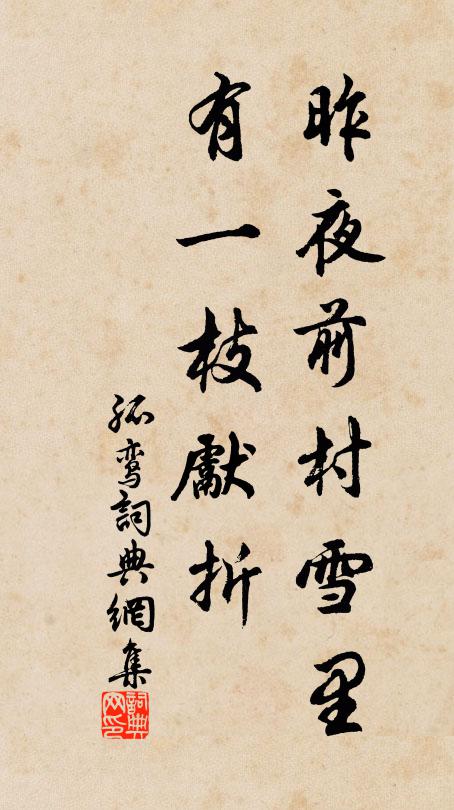 昨夜前村雪里
有一枝獻折
孤鸾詞典網集
詞典网印